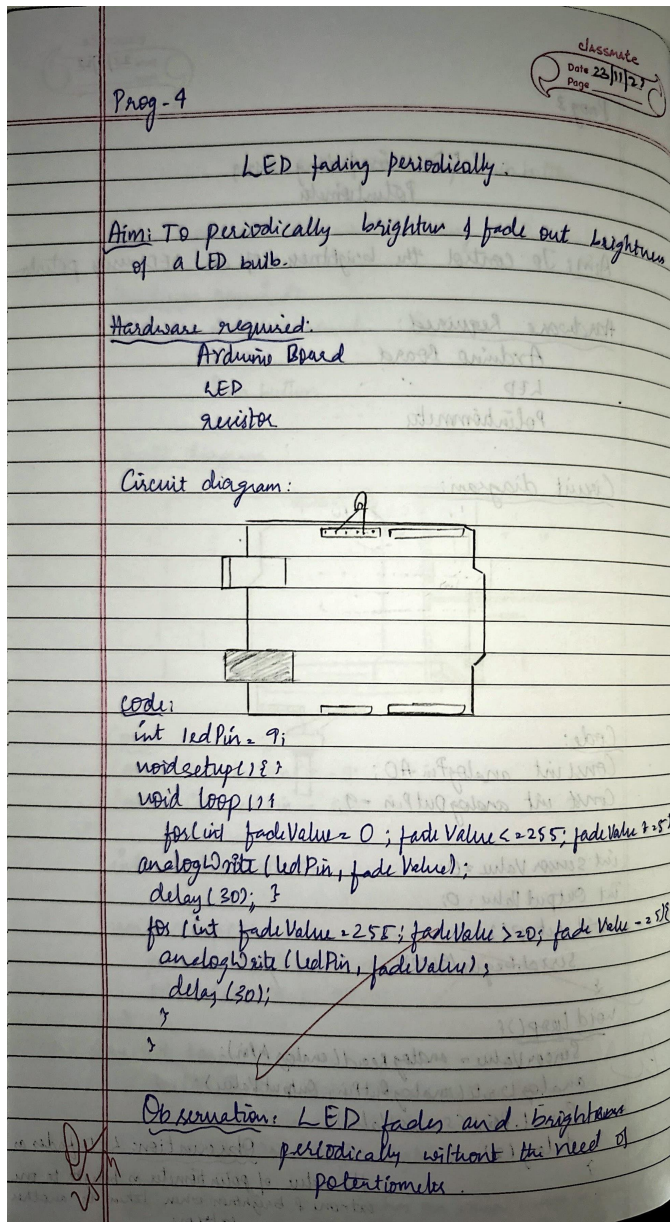 classmate
Date 23/11/23
Page
Prog-4
LED fading periodically.
Aim: To periodically brightnes & fade out brightness
of a LED bulb.
Hardware required:
Arduino Board
LED
resistor
Circuit diagram:
code:
int ledPin = 9;
void setup() { }
void loop() {
for(int fadeValue = 0 ; fade Value <=255; fadeValue +=5){
analogWrite (ledPin, fade Value);
delay (30); }
for (int fadeValue = 255; fadeValue >=0; fade Value -=5){
analogWrite (ledPin, fadeValue);
delay (30);
}
}
Observation: LED fades and brightness
periodically without the need of
potentiometer.